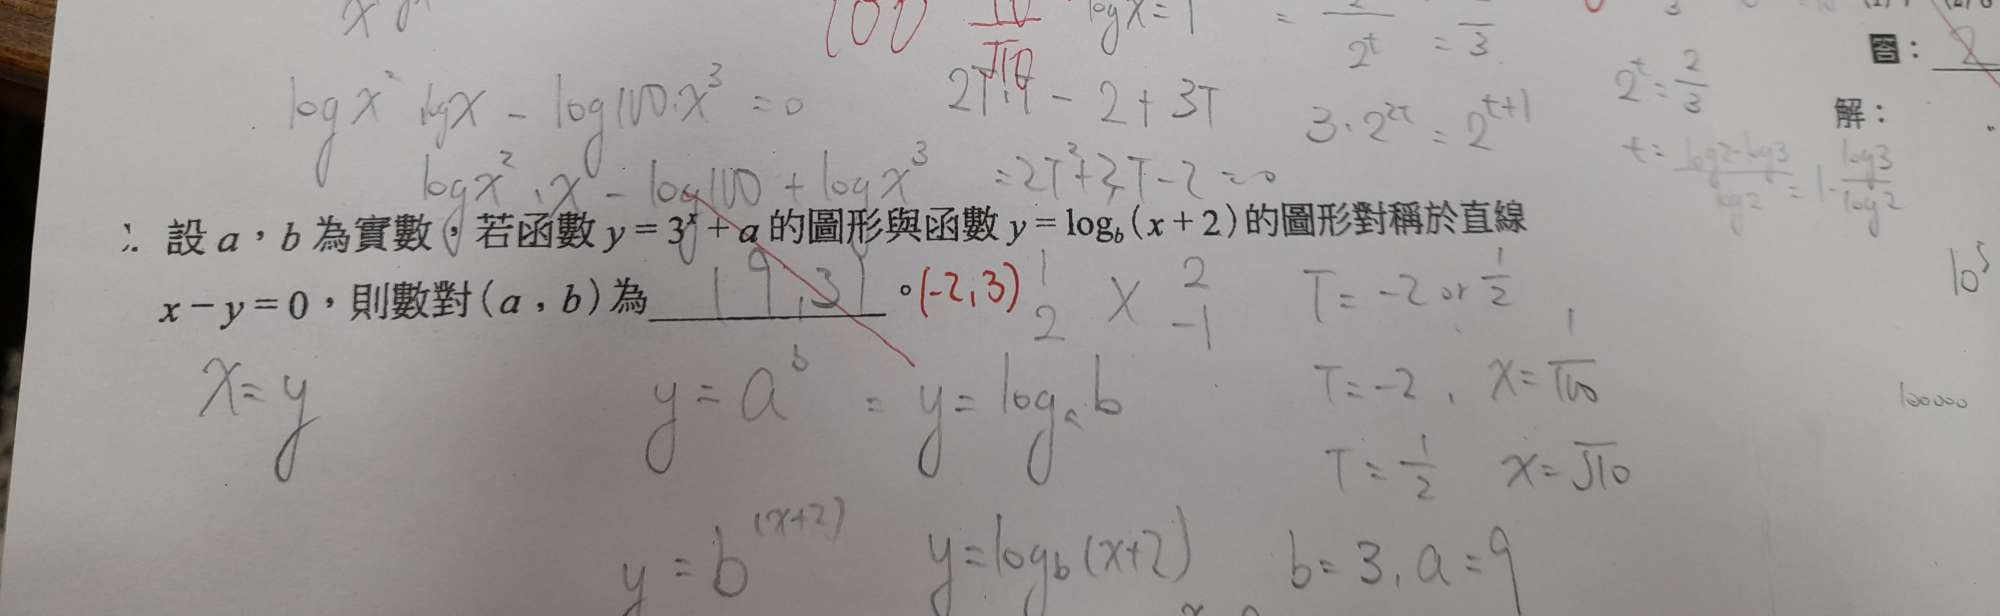 100 logx=1
答：2
logx² logx - log100·x³ = 0 2T·T - 2 + 3T 3·2²ᵗ = 2ᵗ⁺¹ 2ᵗ = 2/3
解：
logx²·x - log100 + logx³ = 2T² + 3T - 2 = 0 t = (log2 - log3)/log2 = 1 - log3/log2
設 a，b 為實數，若函數 y = 3ˣ + a 的圖形與函數 y = log_b (x + 2) 的圖形對稱於直線
x − y = 0，則數對 (a，b) 為 (9,3)。(-2,3)
1 2 × 2 -1 T = -2 or 1/2 10⁵
x = y y = aᵇ = y = logₐb T = -2, x = 1/100 100000
T = 1/2 x = √10
y = b⁽ˣ⁺²⁾ y = log_b (x+2) b = 3, a = 9